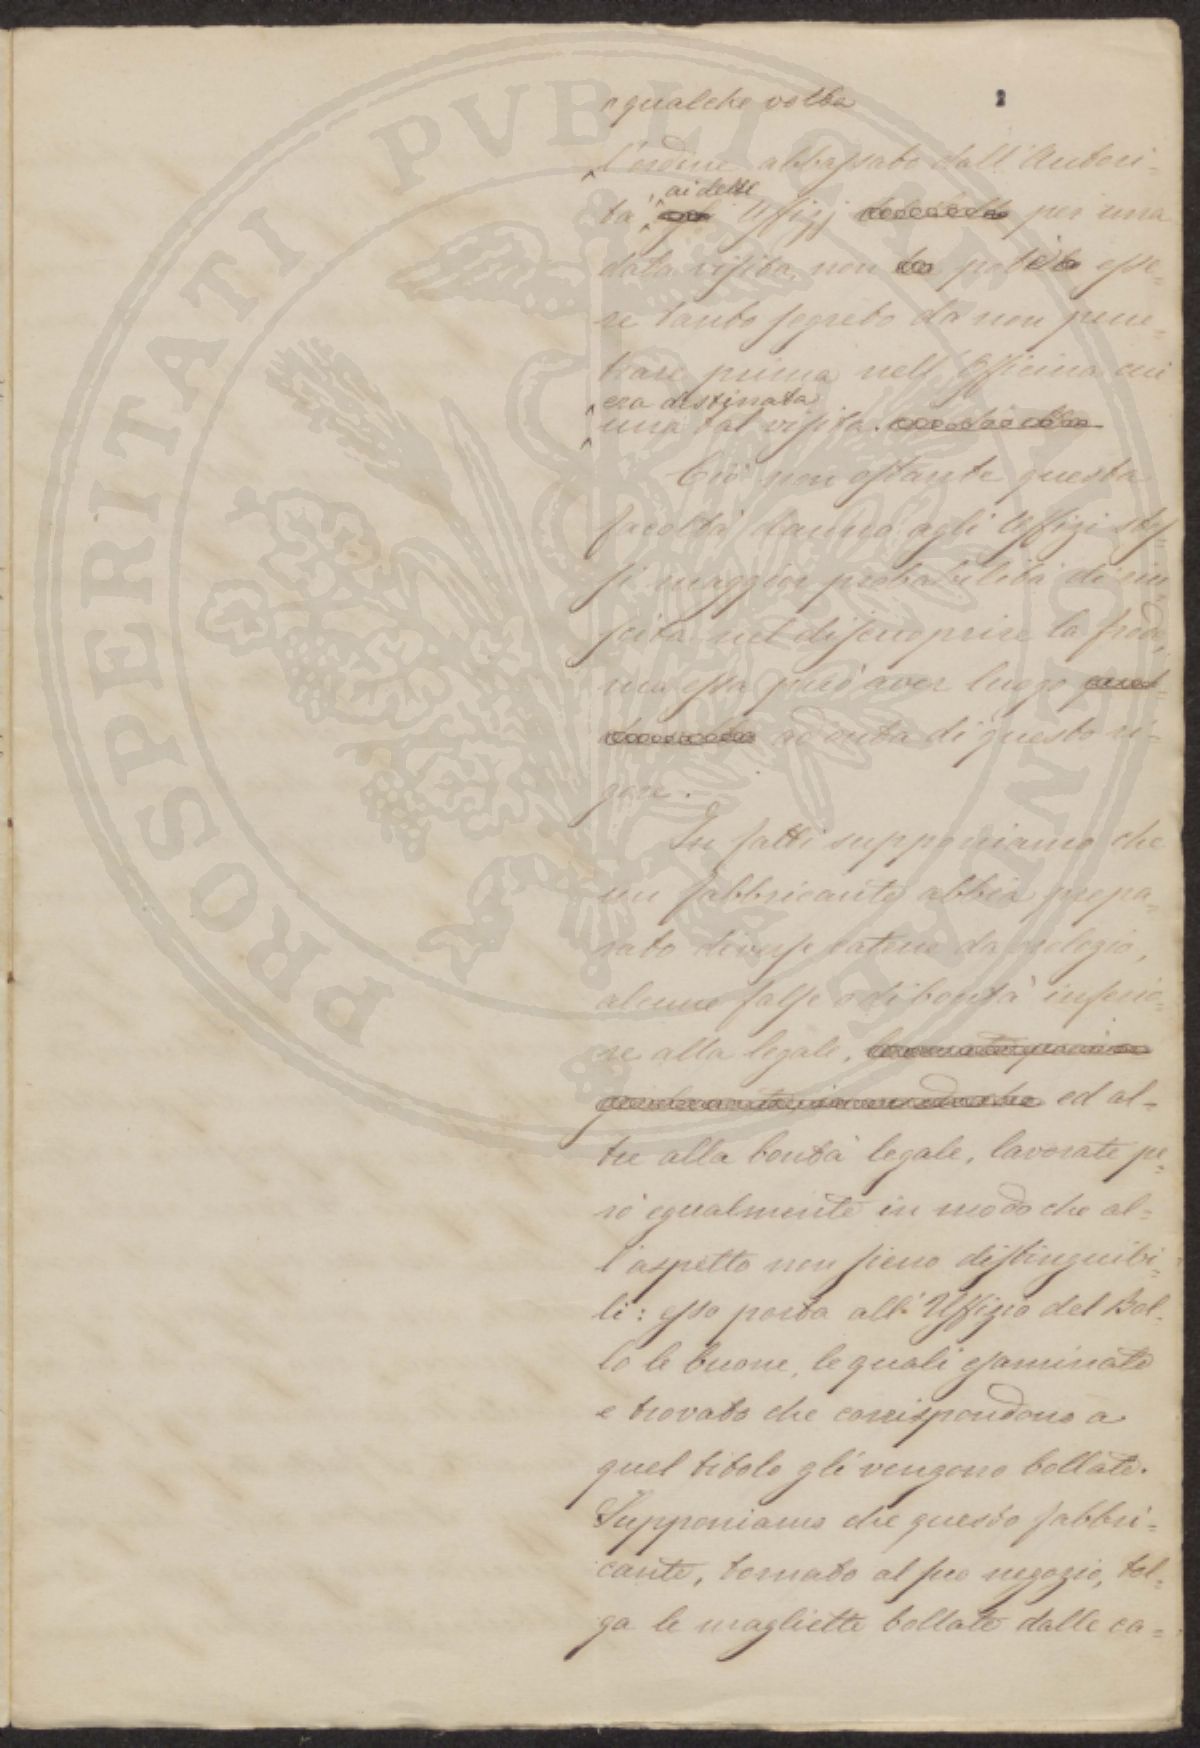 qualche volta
l'ordine abbassato dall'Autori-
ai detti
tà Uffizj per una
data visita non potesse esse-
re tanto segreto da non pene-
trare prima nell'Officina cui
era destinata
una tal visita.
Ciò non ostante questa
facoltà danno agli Uffizi stes
si maggior probabilità di riu
scita nel discuoprire la frode,
ma essa può aver luogo
ad onta di questo ri-
gore.
In fatti supponiamo che
un fabbricante abbia prepa-
rato diverse catene da orologio,
alcune false o di bontà inferio-
re alla legale, ed al-
tre alla bontà legale, lavorate pe-
rò egualmente in modo che al-
l'aspetto non sieno distinguibi-
li: esso porta all'Uffizio del Bol-
lo le buone, le quali esaminate
e trovato che corrispondono a
quel titolo gli vengono bollate.
Supponiamo che questo fabbri-
cante, tornato al suo negozio, tol-
ga le magliette bollate dalle ca-
PROSPERITATI PVBLICAE AVGENDAE